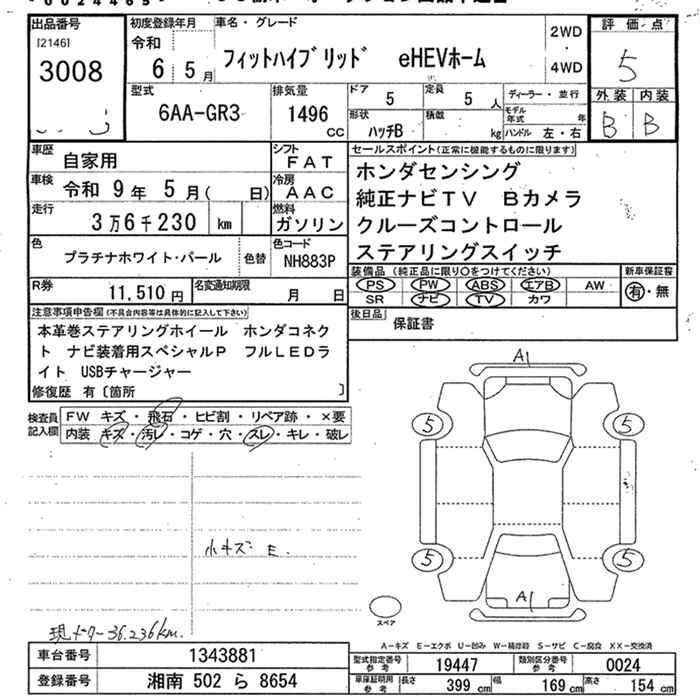 出品番号
[2146]
3008
初度登録年月
令和
6年5月
車名・グレード
フィットハイブリッド eHEVホーム
2WD
・
4WD
評価点
5
外装 内装
B B
型式
6AA-GR3
排気量
1496
CC
ドア
5
定員
5 人
形状
ハッチB
積載
kg
ディーラー・並行
モデル年式 年
ハンドル 左・右
車歴
自家用
シフト
FAT
車検
令和 9年 5月( 日)
冷房
AAC
走行
3万6千230 km
燃料
ガソリン
色
プラチナホワイト・パール
色替
色コード
NH883P
R券
11,510円
名変通知期限
月 日
セールスポイント(正常に機能するものに限ります)
ホンダセンシング
純正ナビTV Bカメラ
クルーズコントロール
ステアリングスイッチ
装備品(純正品に限り○をつけてください)
PS PW ABS エアB AW
SR ナビ TV カワ
新車保証書
有・無
後日品
保証書
注意事項申告欄(不具合内容等は具体的に記入して下さい)
本革巻ステアリングホイール ホンダコネク
ト ナビ装着用スペシャルP フルLEDラ
イト USBチャージャー
修復歴 有〔箇所 〕
検査員記入欄
FW キズ・飛石・ヒビ割・リペア跡・×要
内装 キズ・汚レ・コゲ・穴・スレ・キレ・破レ
小キズ E.
現メーター36.236km.
A1
5
5
5
5
A1
スペア
A-キズ E-エクボ U-凹み W-補修跡 S-サビ C-腐食 XX-交換済
車台番号
1343881
登録番号
湘南 502 ら 8654
型式指定番号
参考
19447
類別区分番号
参考
0024
車庫証明用
参考
長さ 399 cm
幅 169 cm
高さ 154 cm